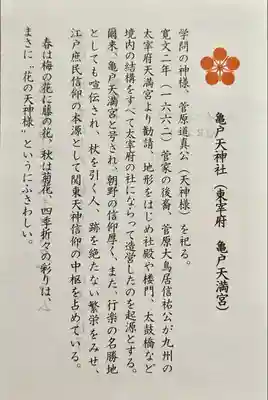 亀戸天神社（東宰府　亀戸天満宮）
学問の神様、菅原道真公（天神様）を祀る。
寛文二年（一六六二）菅家の後裔、菅原大鳥居信祐公が九州の
太宰府天満宮より勧請、地形をはじめ社殿や楼門、太鼓橋など
境内の結構をすべて太宰府の社にならって造営したのを起源とする。
爾来、亀戸天満宮と号され、朝野の信仰厚く、また、行楽の名勝地
としても喧伝され、杖を引く人、跡を絶たない繁栄をみせ、
江戸庶民信仰の本源として関東天神信仰の中枢を占めている。
春は梅の花に藤の花、秋は菊花、四季折々の彩りは、
まさに“花の天神様”というにふさわしい。